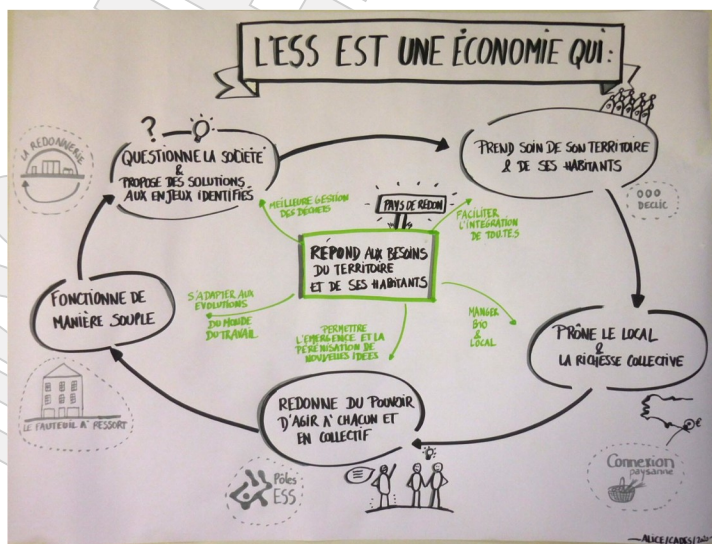 L'ESS EST UNE ÉCONOMIE QUI:
QUESTIONNE LA SOCIÉTÉ
&
PROPOSE DES SOLUTIONS
AUX ENJEUX IDENTIFIÉS
?
LA REDONNERIE
PREND SOIN DE SON TERRITOIRE
& DE SES HABITANTS
DECLIC
MEILLEURE GESTION
DES DÉCHETS
PAYS DE REDON
FACILITER
L'INTÉGRATION
DE TOUTES
RÉPOND AUX BESOINS
DU TERRITOIRE
ET DE SES HABITANTS
S'ADAPTER AUX
ÉVOLUTIONS
DU MONDE
DU TRAVAIL
PERMETTRE
L'ÉMERGENCE ET LA
PÉRENISATION DE
NOUVELLES IDÉES
MANGER
BIO
&
LOCAL
FONCTIONNE DE
MANIÈRE SOUPLE
LE FAUTEUIL À RESSORT
PRÔNE LE LOCAL
&
LA RICHESSE COLLECTIVE
€
Connexion
paysanne
REDONNE DU POUVOIR
D'AGIR À CHACUN ET
EN COLLECTIF
Pôles
ESS